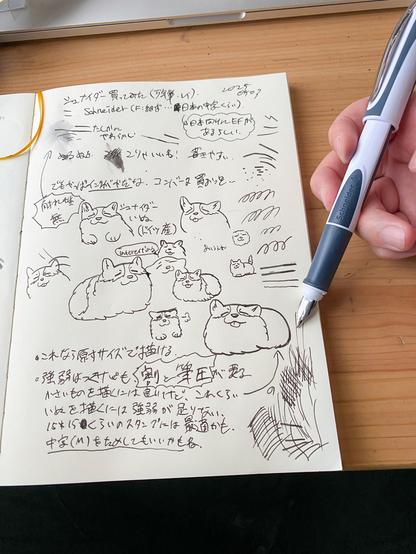 シュナイダー買ってみた(万年筆、レイ)
2025
09.07
Schneider (F:細字… 日本の中字くらい)
日本向けにEFが
あるらしい。
たしかに
やわらかい
ぬるぬる
こりゃいいね! 書きやすい。
でもやっぱインクがやだな、コンバータ買おうかな
耐水性
無
シュナイダー
いぬ
(ドイツ産)
Interesting
•これなら原寸サイズで描ける
•強弱はつくけども、割と筆圧が要る
小さいものを描くには良いけど、これくらい
いぬを描くには強弱が足りない。
15×15くらいのスタンプには最適かも。
中字(M)もためしてもいいかもね。
Schneider